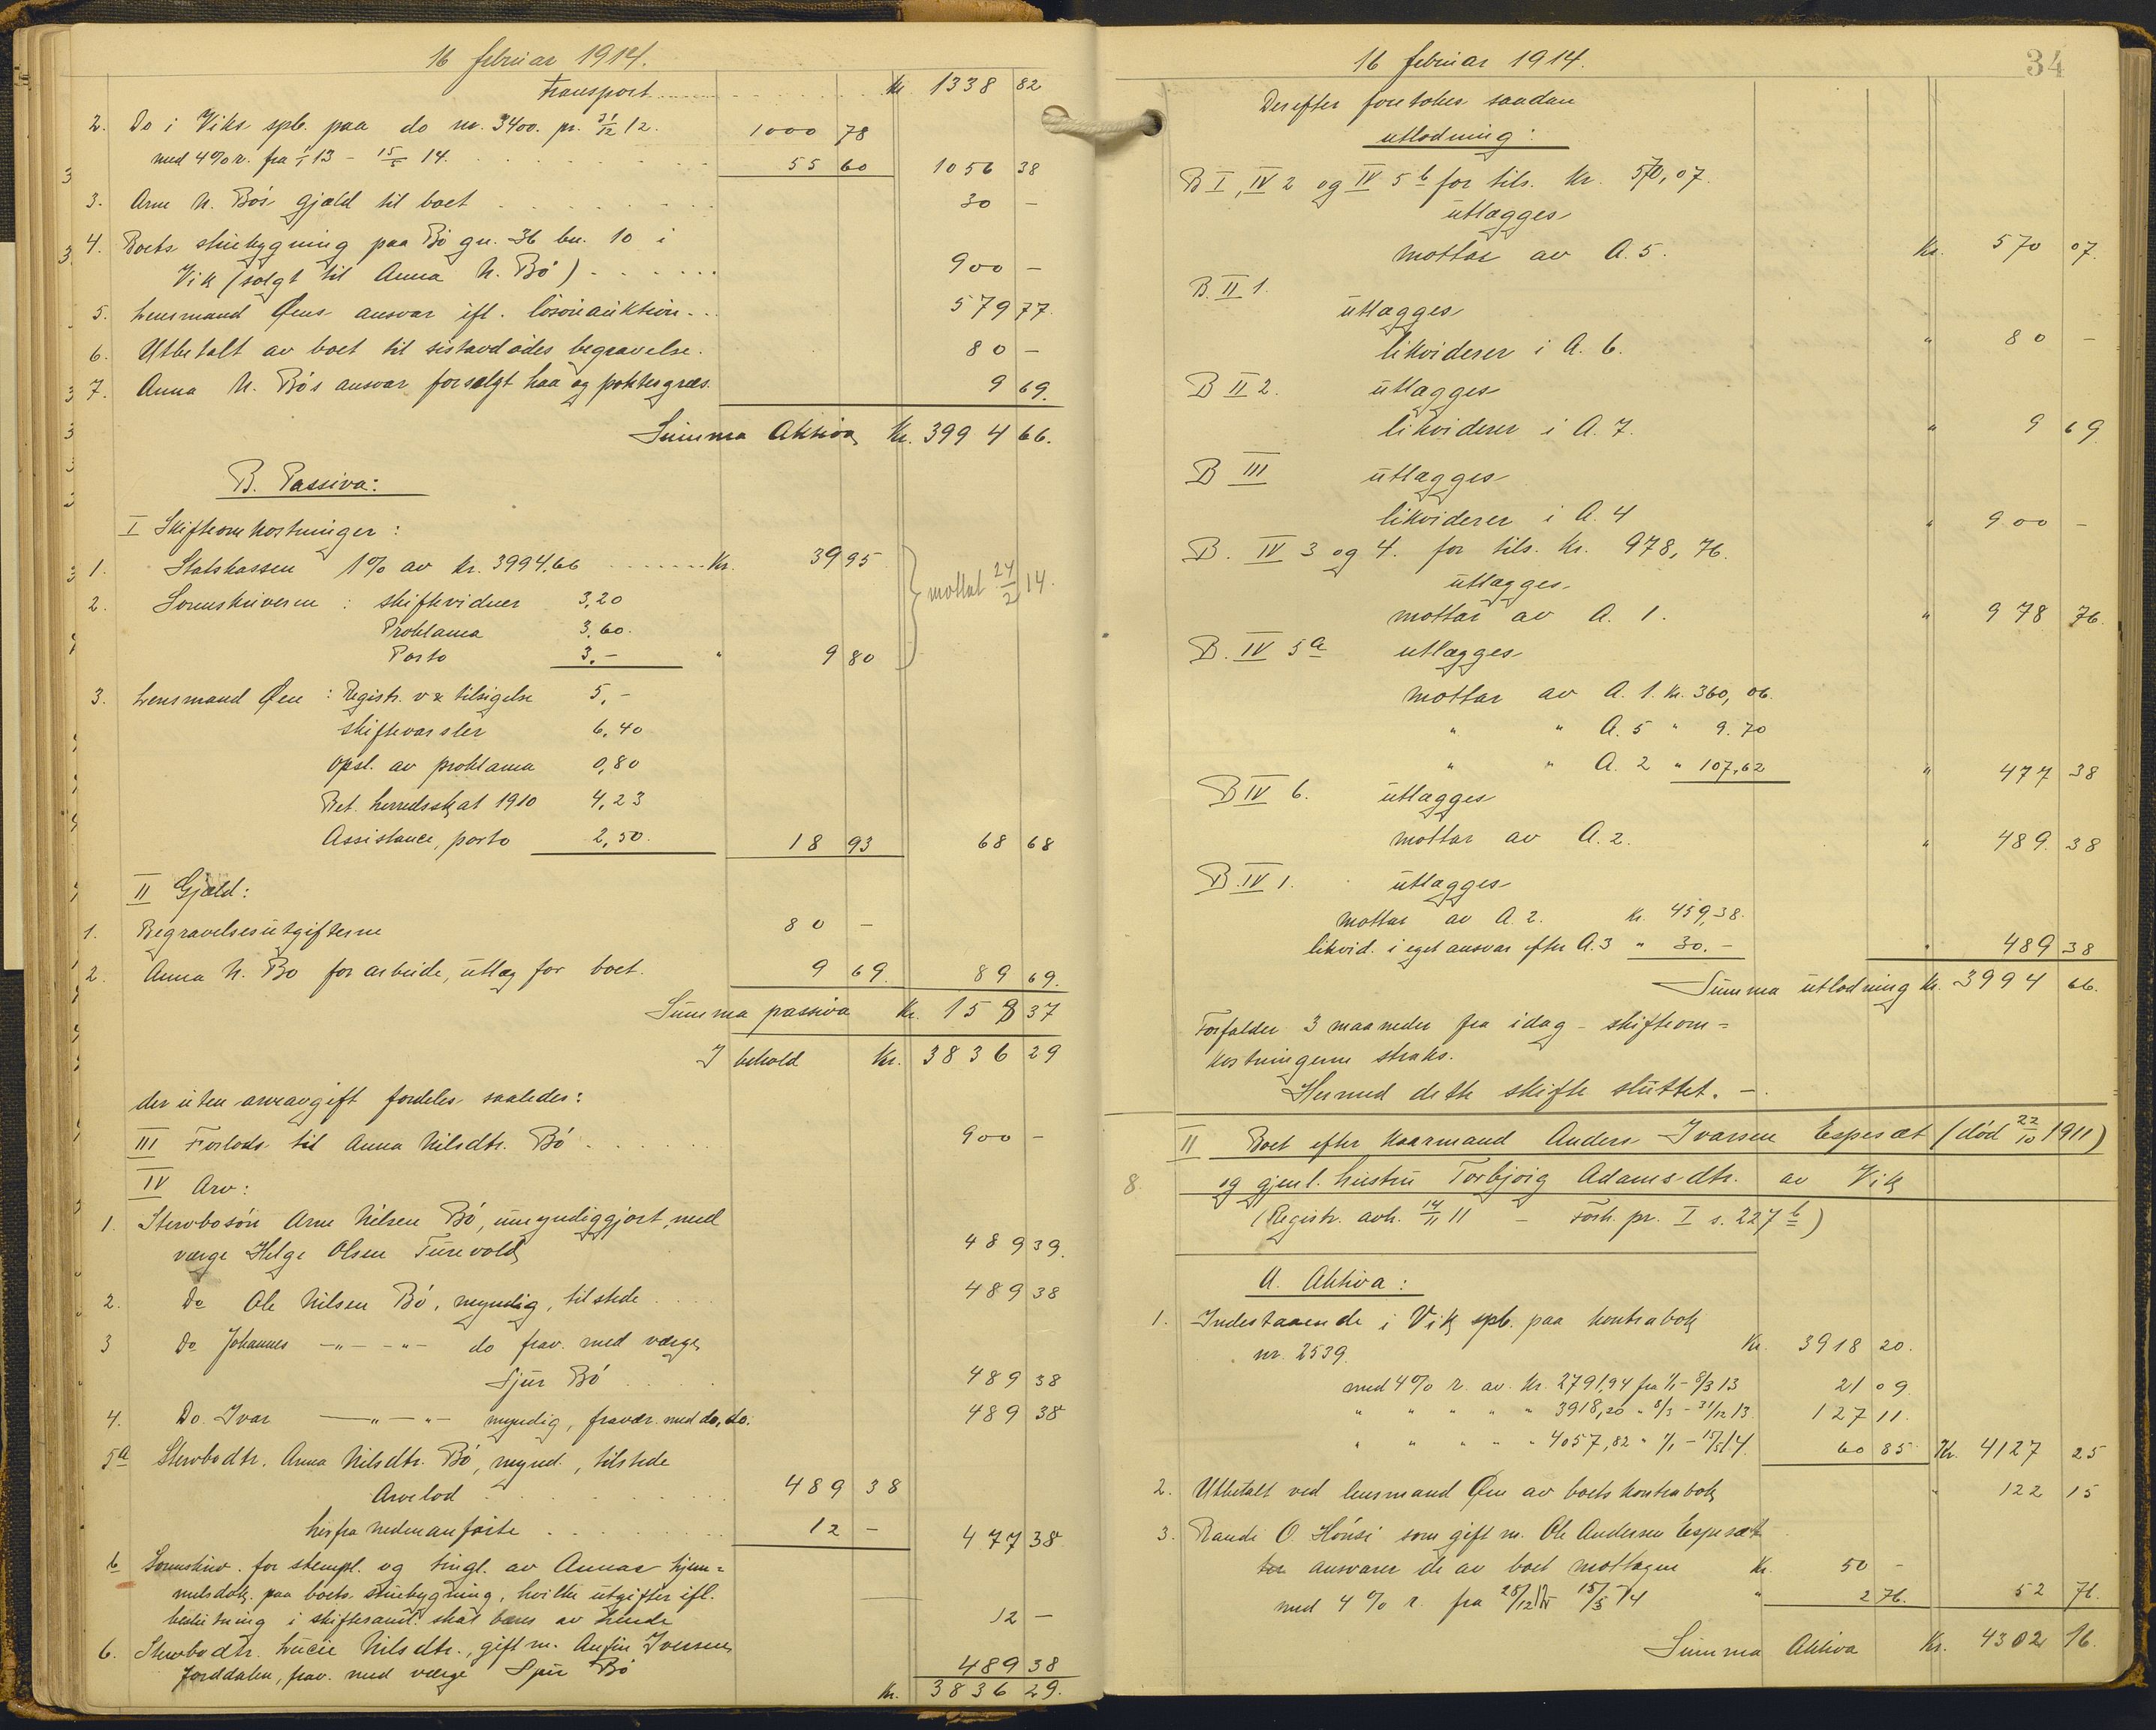 16 februar 1914.
Transport Kr. 1338 82
2. Do i Viks spb. paa do nr. 3400. pr. 31/12 12. 1000 78
med 4% r. fra 1/1 13 - 15/5 14. 55 60 1056 38
3. Arne N. Bö's gjæld til boet 30 -
4. Boets stuebygning paa Bö gn. 36 bn. 10 i
Vik (solgt til Anna N. Bö) 900 -
5. Lensmand Øens ansvar ifl. lösöreauktion 579 77.
6. Utbetalt av boet til sistavdödes begravelse. 80 -
7. Anna N. Bö's ansvar for sælgt haa og potetesgræs. 9 69.
Summa Aktiva Kr. 3994 66.
B. Passiva:
I Skifteomkostninger:
1. Statskassen 1% av kr. 3994.66 Kr. 39 95
2. Sorenskriveren: skiftevidner 3,20
Proklama 3,60.
Porto 3,- " 9 80
mottat 24/2 14.
3. Lensmand Øen: Registr. v & tilsigelse 5,-
skiftevarsler 6,40
opsl. av proklama 0,80
Bet. herredsskat 1910 4,23
Assistance, porto 2,50. 18 93 68 68
II Gjæld:
1. Begravelsesutgifterne 80 -
2. Anna N. Bö for arbeide, utlæg for boet. 9 69. 89 69.
Summa passiva Kr. 158 37
I behold Kr. 3836 29
der uten arveavgift fordeles saaledes:
III Forlods til Anna Nilsdtr. Bö 900 -
IV Arv:
1. Stervbosön Arne Nilsen Bö, umyndiggjort, med
værge Helge Olsen Turvold 489 39.
2. Do Ole Nilsen Bö, myndig, tilstede 489 38
3 Do Johannes -"- -"- do frav. med værge
Sjur Bö 489 38
4. Do. Ivar -"- -"- myndig, fravær. med do, do. 489 38
5a Stervbodtr. Anna Nilsdtr. Bö, mynd., tilstede
Arvelod 489 38
herfra nedenanförte 12 - 477 38
b Sorenskriv. for stempl. og tingl. av Annas hjem=
melsdok. paa boets stuebygning, hvilke utgifter ifl.
beslutning i skiftesaml. skal bæres av hende 12 -
6. Stervbodtr. Lucie Nilsdtr., gift m. Anfin Iversen
Jorddalen, frav. med værge Sjur Bö 489 38
Kr. 3836 29.
16 februar 1914.
34
Derefter foretokes saadan
utlodning:
B I, IV 2 og IV 5 b for tils. Kr. 570,07.
utlægges
mottar av A. 5. Kr. 570 07.
B. II 1.
utlægges
likviderer i A. 6. " 80 -
B II 2. utlægges
likviderer i A. 7. " 9 69
B III utlægges
likviderer i A. 4 " 900 -
B. IV 3 og 4. for tils. Kr. 978,76.
utlægges
mottar av A. 1. " 978 76.
B. IV 5a utlægges
mottar av A. 1. Kr. 360,06.
" " A. 5 " 9.70
" " A. 2 " 107,62 " 477 38
B IV 6. utlægges
mottar av A. 2. " 489. 38
B. IV 1. utlægges
mottar av A. 2. Kr. 459,38.
likvid. i eget ansvar efter A. 3 " 30.- " 489 38
Summa utlodning Kr. 3994 66.
Forfalder 3 maaneder fra idag - skifteom=
kostningerne straks.
Hermed dette skifte sluttet. -
8.
II Boet efter kaarmand Anders Ivarsen Espesæt (död 22/10 1911)
og gjenl. hustru Torbjörg Adamsdtr. av Vik
(Registr. avh. 14/11 11 - Forh. pr. I s. 227 b)
A. Aktiva:
1. Indestaaende i Vik spb. paa kontrabok
nr. 2539. Kr. 3918 20.
med 4% r. av. Kr. 2791,94 fra 1/1 - 8/3 13 21 09.
" " " " " 3918,20 " 8/3 - 31/12 13. 127 11.
" " " " " 4057,82 " 1/1 - 15/5 14. 60 85 Kr. 4127 25
2. Utbetalt ved lensmand Øen av boets kontrabok " 122 15
3. Randi O. Hönsi som gift m. Ole Andersen Espesæt
ansvarer de av boet mottagne Kr. 50 -
med 4% r. fra 28/12 12 15/5 14 " 2 76. 52 76.
Summa Aktiva Kr. 4302 16.